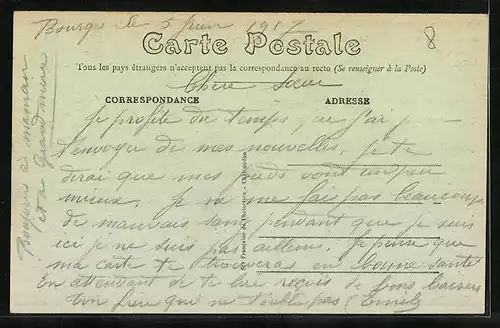 Bourges le 5 Juin 1917
8
Carte Postale
Tous les pays étrangers n'acceptent pas la correspondance au recto (Se renseigner à la Poste)
Chère Sœur
CORRESPONDANCE ADRESSE
Je profite du temps que j'ai pour
t'envoyer de mes nouvelles. Je te
dirai que mes pieds vont un peu
mieux. Je ne me fais pas beaucoup
de mauvais sang pendant que je suis
ici je ne suis pas ailleurs. Je pense que
ma carte te trouveras en bonne santé
En attendant de te lire reçois de bons baisers
ton frère qui ne t'oublie pas (Emile)
Bonjours à maman
et a Grand mère